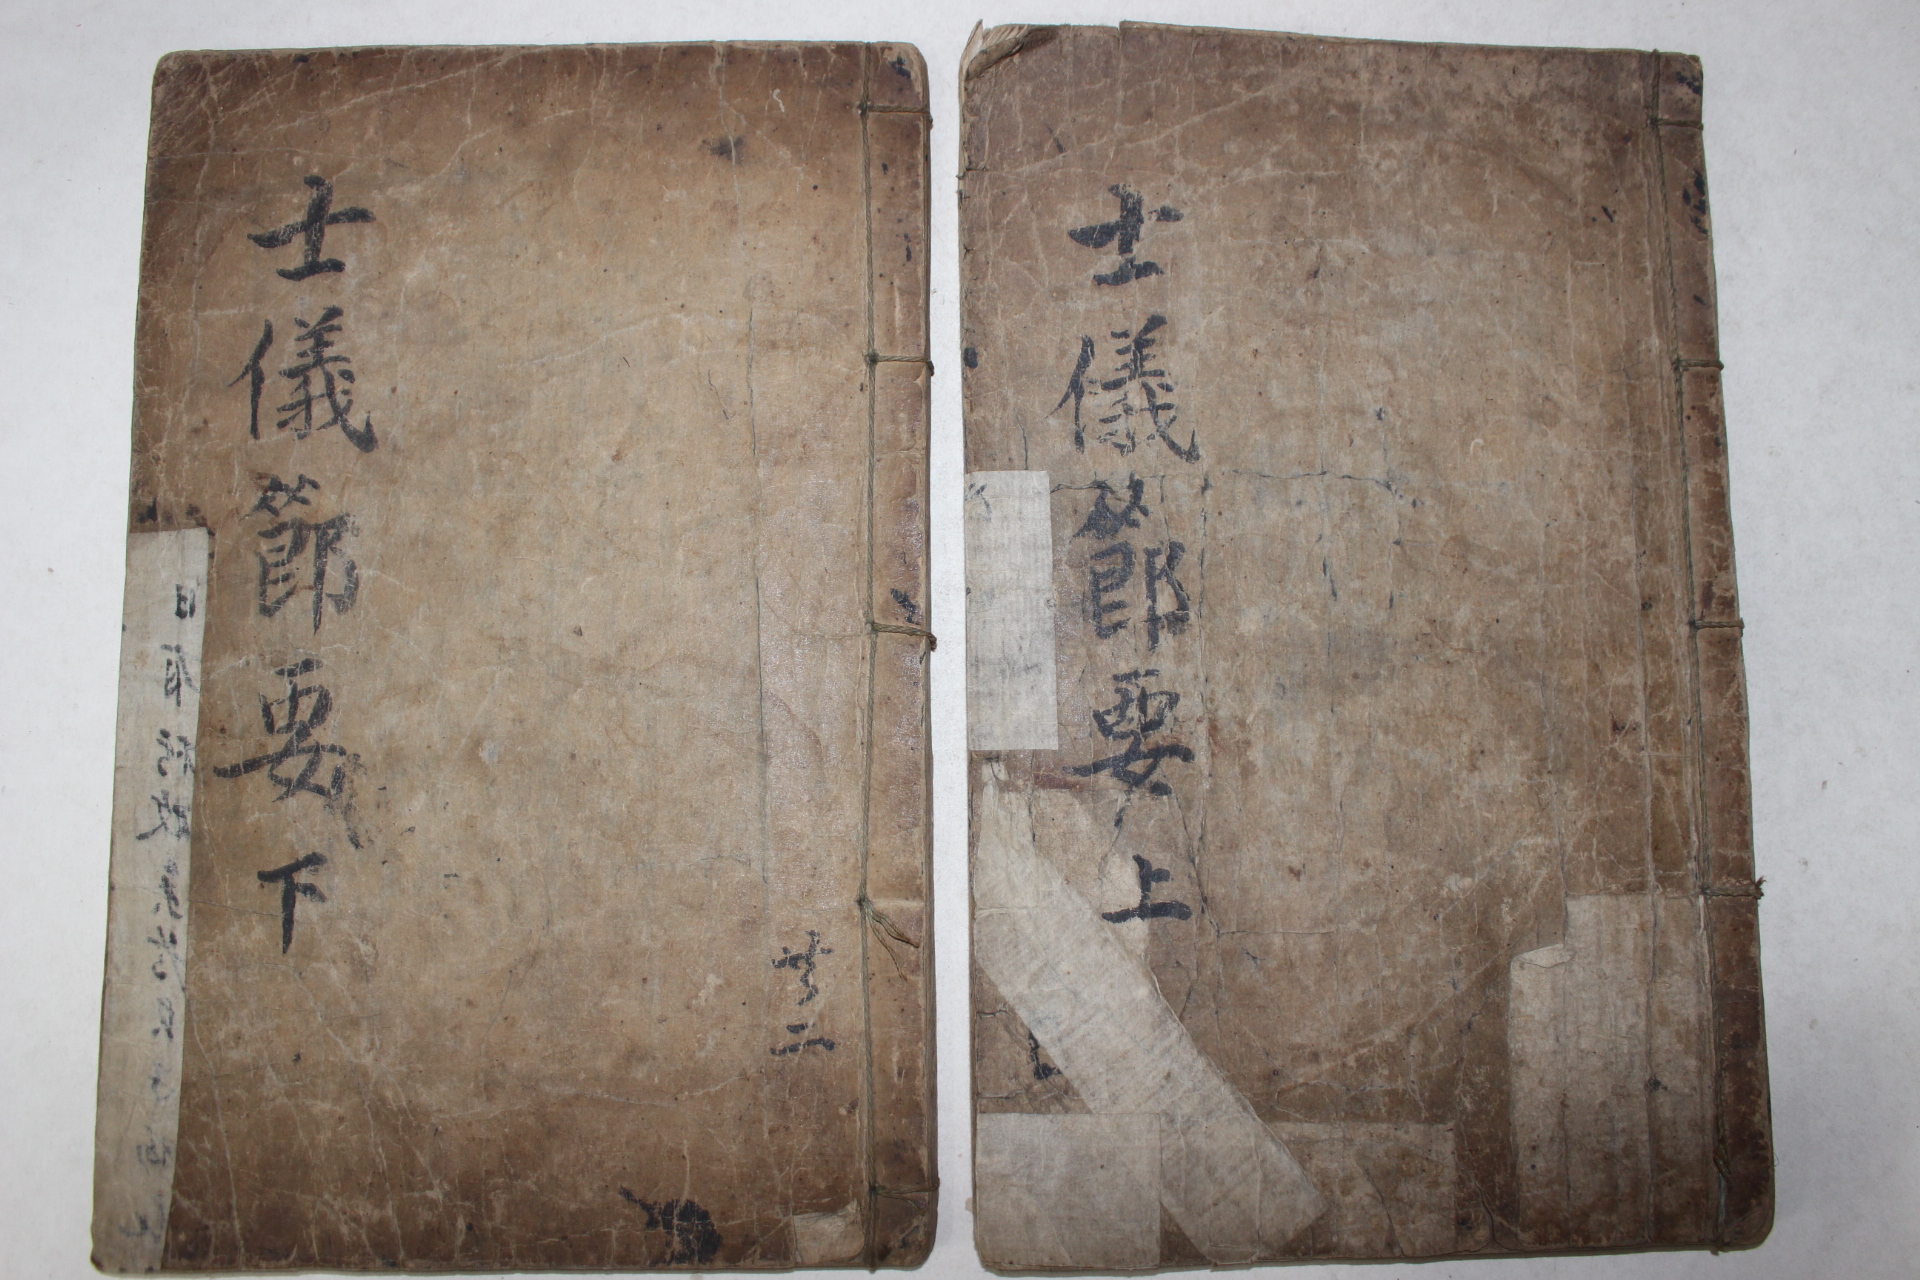 士儀節要上
士儀節要下
共二